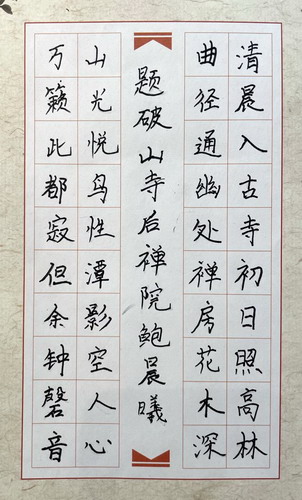 清晨入古寺初日照高林
曲径通幽处禅房花木深
题破山寺后禅院鲍晨曦
山光悦鸟性潭影空人心
万籁此都寂但余钟磬音